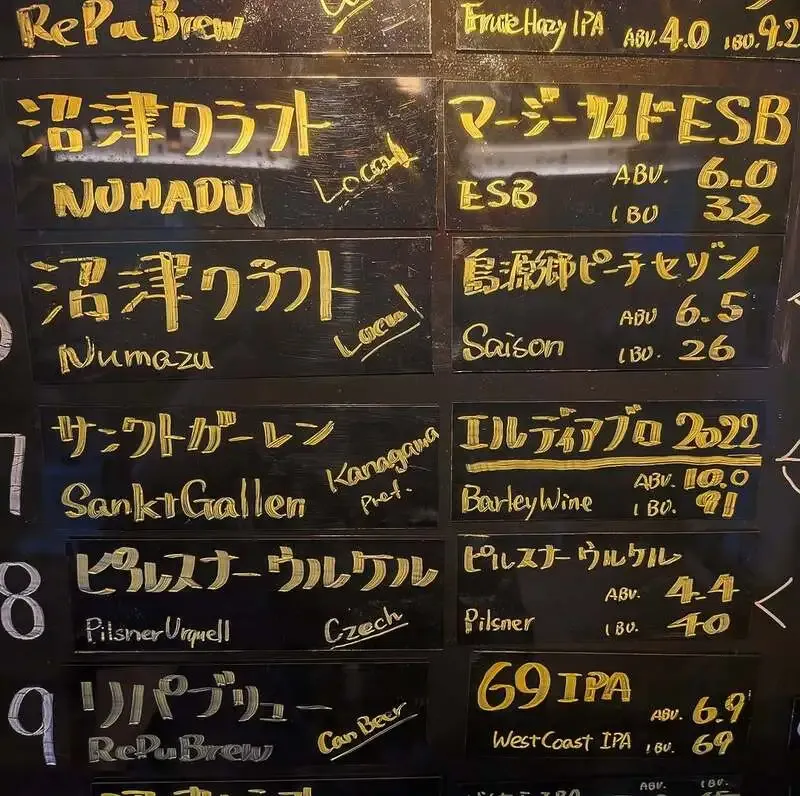 RePuBrew
Fruit Hazy IPA ABV. 4.0 IBU. 9.2
沼津クラフト
NUMADU
Local
マージーサイドESB
ESB
ABV. 6.0
IBU 32
沼津クラフト
Numazu
Local
島源郷ピーチセゾン
Saison
ABV 6.5
IBU. 26
7
サンクトガーレン
SanktGallen
Kanagawa
Pref.
エルディアブロ 2022
BarleyWine
ABV. 10.0
IBU. 91
8
ピルスナーウルケル
PilsnerUrquell
Czech
ピルスナーウルケル
Pilsner
ABV. 4.4
IBU. 40
9
リパブリュー
RePuBrew
Can Beer
69 IPA
WestCoast IPA
ABV. 6.9
IBU. 69
ABU. IBU.